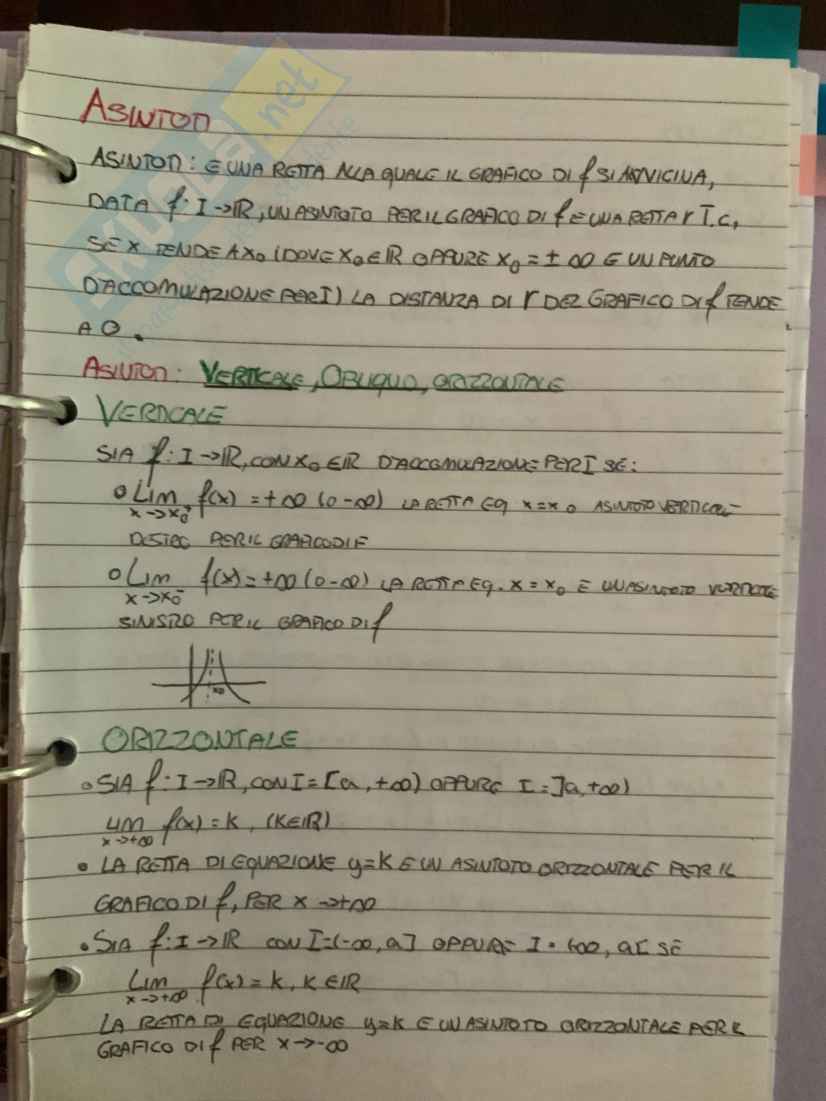 ASINTOTI
ASINTOTI: È UNA RETTA ALLA QUALE IL GRAFICO DI f SI AVVICINA,
DATA f: I→ℝ, UN ASINTOTO PER IL GRAFICO DI f È UNA RETTA r T.c.,
SE X TENDE A X₀ (DOVE X₀∈ℝ OPPURE X₀=±∞ È UN PUNTO
D'ACCOMULAZIONE PER I) LA DISTANZA DI r DEL GRAFICO DI f TENDE
A 0.
ASINTOTI: VERTICALE, OBLIQUO, ORIZZONTALE
VERTICALE
SIA f: I→ℝ, CON X₀∈ℝ D'ACCOMULAZIONE PER I SE:
o Lim f(x)=+∞ (o -∞) LA RETTA EQ x=x₀ ASINTOTO VERTICALE
x→x₀⁺
DESTRO PER IL GRAFICO DI F
o Lim f(x)=+∞ (o -∞) LA RETTA EQ. x=x₀ È UN ASINTOTO VERTICALE
x→x₀⁻
SINISTRO PER IL GRAFICO DI f
x₀
ORIZZONTALE
• SIA f: I→ℝ, CON I=[a,+∞) OPPURE I=]a,+∞)
Lim f(x)=K, (K∈ℝ)
x→+∞
• LA RETTA DI EQUAZIONE y=K È UN ASINTOTO ORIZZONTALE PER IL
GRAFICO DI f, PER X→+∞
• SIA f: I→ℝ CON I=(-∞,a] OPPURE I=(-∞,a[ SE
Lim f(x)=K, K∈ℝ
x→+∞
LA RETTA DI EQUAZIONE y=K È UN ASINTOTO ORIZZONTALE PER IL
GRAFICO DI f PER X→-∞
SKUOLA.net